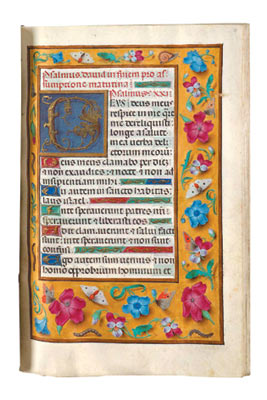 Psalmus david in finem pro as
sumptione matutina
Psalmus XXI
DEUS deus meus
respice in me qua
re me dereliquisti
longe a salute
mea verba delic
torum meorum
Deus meus clamabo per diem
& non exaudies: & nocte & non ad
insipientiam mihi
Tu autem in sancto habitas
laus israel
In te speraverunt patres nri
speraverunt & liberasti eos
Ad te clamaverunt & salvi facti
sunt: in te speraverunt & non sunt
confusi
Ego autem sum vermis & non
homo opprobrium hominum et